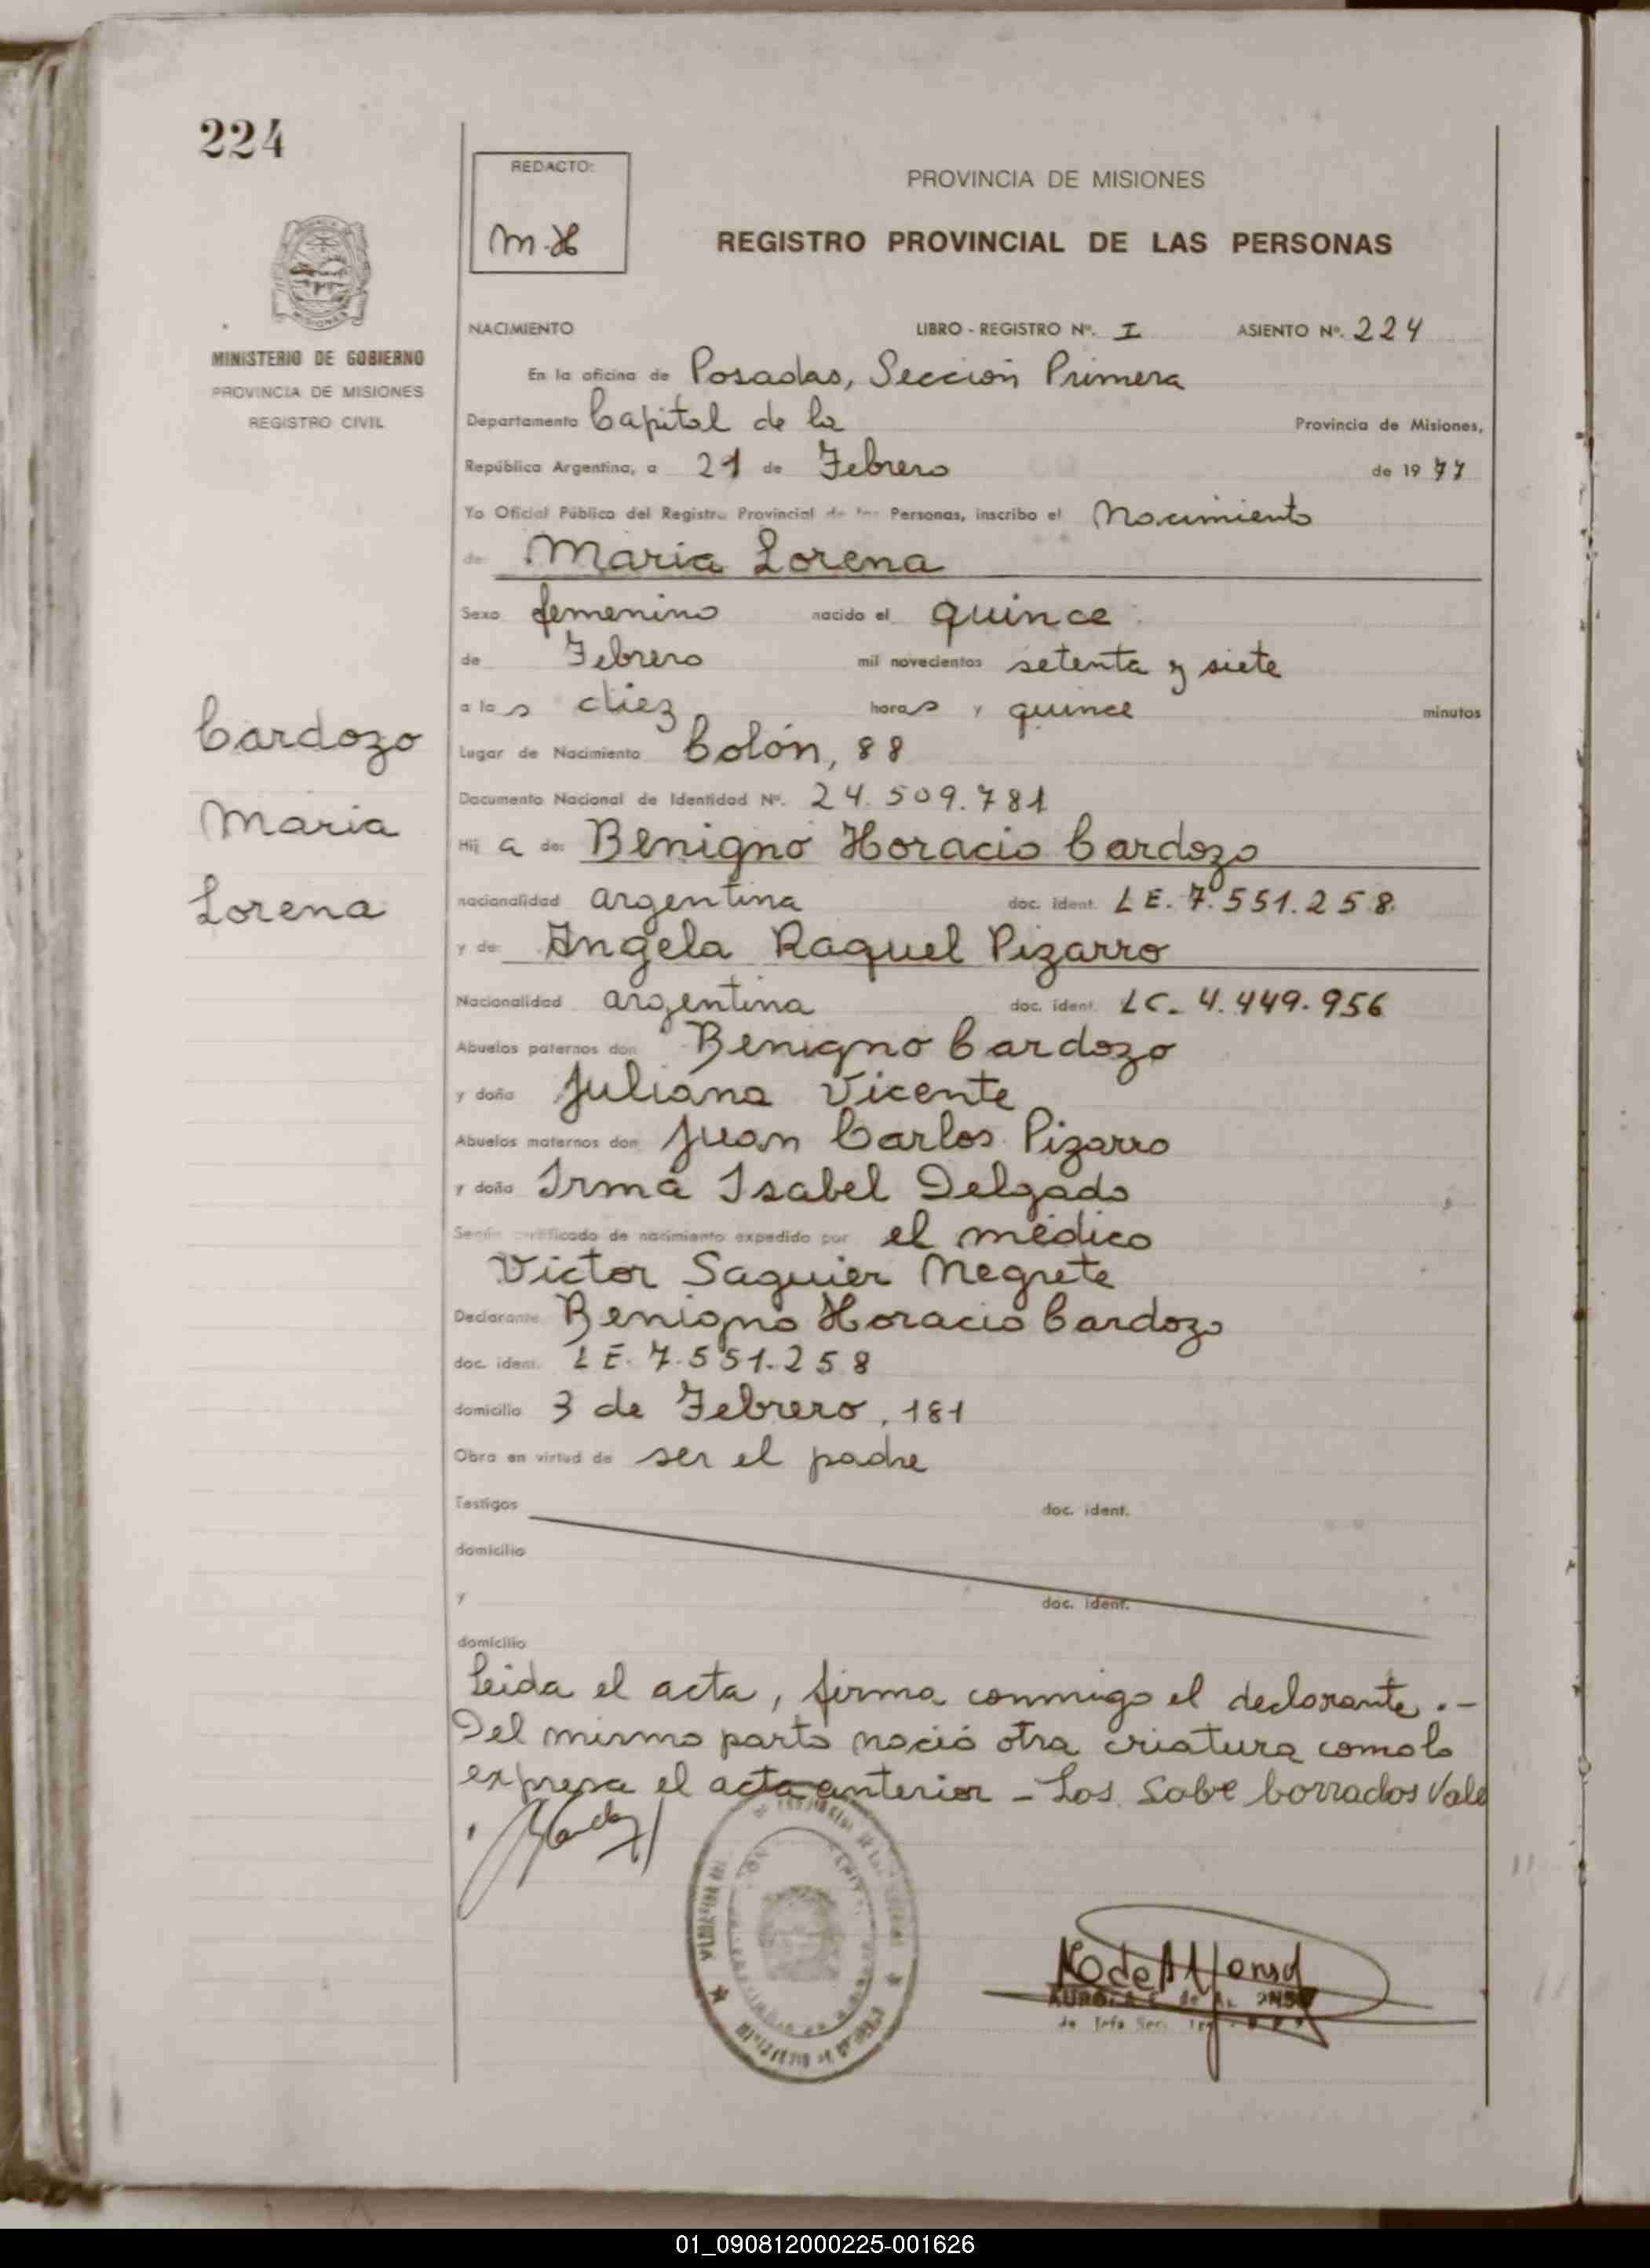 224
REDACTO:
M.H
PROVINCIA DE MISIONES
REGISTRO PROVINCIAL DE LAS PERSONAS
MISIONES
MINISTERIO DE GOBIERNO
PROVINCIA DE MISIONES
REGISTRO CIVIL
NACIMIENTO LIBRO - REGISTRO Nº. I ASIENTO Nº. 224
En la oficina de Posadas, Sección Primera
Departamento Capital de la Provincia de Misiones,
República Argentina, a 21 de Febrero de 1977
Yo Oficial Público del Registro Provincial de las Personas, inscribo el Nacimiento
de: Maria Lorena
Sexo femenino nacido el quince
de Febrero mil novecientos setenta y siete
a las diez horas y quince minutos
Cardozo
Maria
Lorena
Lugar de Nacimiento Colón, 88
Documento Nacional de Identidad Nº. 24.509.781
Hij a de: Benigno Horacio Cardozo
nacionalidad argentina doc. ident. LE. 7.551.258.
y de: Angela Raquel Pizarro
Nacionalidad argentina doc. ident. LC. 4.449.956
Abuelos paternos don Benigno Cardozo
y doña Juliana Vicente
Abuelos maternos don Juan Carlos Pizarro
y doña Irma Isabel Delgado
Según certificado de nacimiento expedido por el médico
Victor Saguier Negrete
Declarante Benigno Horacio Cardozo
doc. ident. LE. 7.551.258
domicilio 3 de Febrero, 181
Obra en virtud de ser el padre
Testigos doc. ident.
domicilio
y doc. ident.
domicilio
Leida el acta, firma conmigo el declarante.-
Del mismo parto nació otra criatura como lo
expresa el acta anterior - Los sobre borrados Vale
01_090812000225-001626